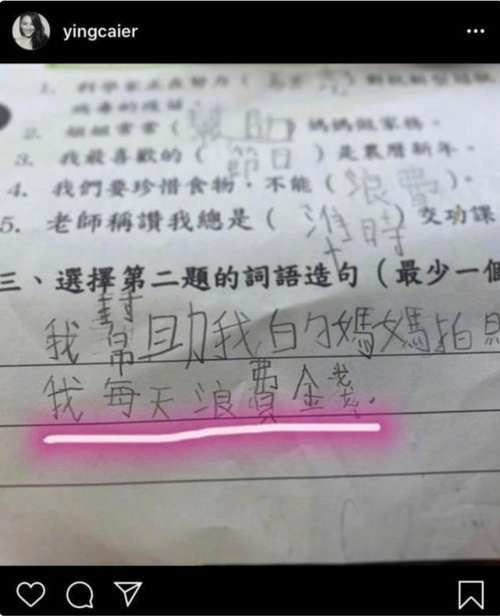 yingcaier
1. 科學家正在努力（
2. 姐姐常常（幫助）媽媽做家務。
3. 我最喜歡的（節日）是農曆新年。
4. 我們要珍惜食物，不能（浪費）。
5. 老師稱讚我總是（準時）交功課
三、選擇第二題的詞語造句（最少一個
我幫助我的媽媽拍
我每天浪費金錢.